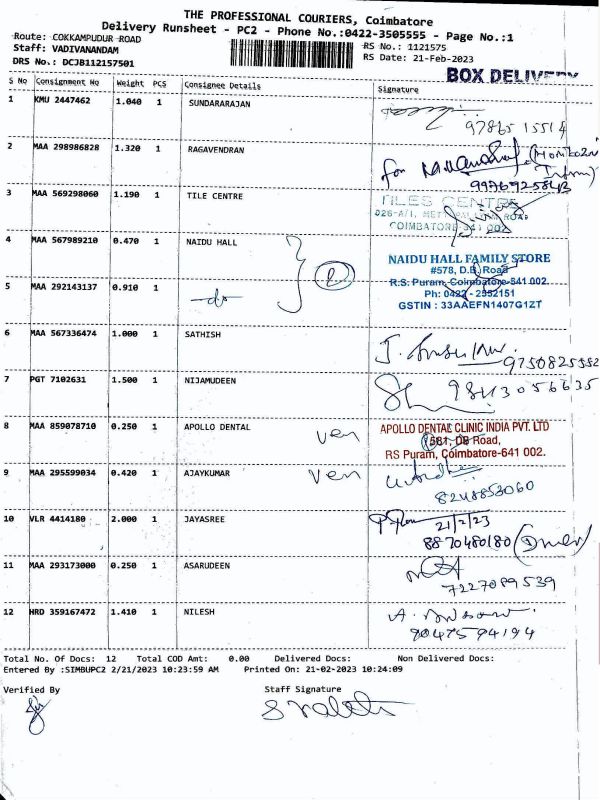 THE PROFESSIONAL COURIERS, Coimbatore
Delivery Runsheet - PC2 - Phone No.:0422-3505555 - Page No.:1
Route: COKKAMPUDUR ROAD
Staff: VADIVANANDAM
DRS No.: DCJB112157501
RS No.: 1121575
RS Date: 21-Feb-2023
BOX DELIVERY
S No Consignment No Weight PCS Consignee Details Signature
1 KMU 2447462 1.040 1 SUNDARARAJAN
97865 15514
2 MAA 298986828 1.320 1 RAGAVENDRAN
for
9976925843
3 MAA 569298060 1.190 1 TILE CENTRE
TILES CENTRE
COIMBATORE-641 002
4 MAA 567989210 0.470 1 NAIDU HALL
2
NAIDU HALL FAMILY STORE
#578, D.B. Road
R.S. Puram, Coimbatore-641 002.
Ph: 0422 - 2552151
GSTIN : 33AAEFN1407G1ZT
5 MAA 292143137 0.910 1 -do-
6 MAA 567336474 1.000 1 SATHISH
9750825552
7 PGT 7102631 1.500 1 NIJAMUDEEN
9843056635
8 MAA 859078710 0.250 1 APOLLO DENTAL
Ven
APOLLO DENTAL CLINIC INDIA PVT. LTD
581, DB Road,
RS Puram, Coimbatore-641 002.
9 MAA 295599034 0.420 1 AJAYKUMAR
Ven
8248853060
10 VLR 4414180 2.000 1 JAYASREE
21/2/23
8870480180 (Driver)
11 MAA 293173000 0.250 1 ASARUDEEN
7227089539
12 HRD 359167472 1.410 1 NILESH
9047594194
Total No. Of Docs: 12 Total COD Amt: 0.00 Delivered Docs: Non Delivered Docs:
Entered By :SIMBUPC2 2/21/2023 10:23:59 AM Printed On: 21-02-2023 10:24:09
Verified By Staff Signature